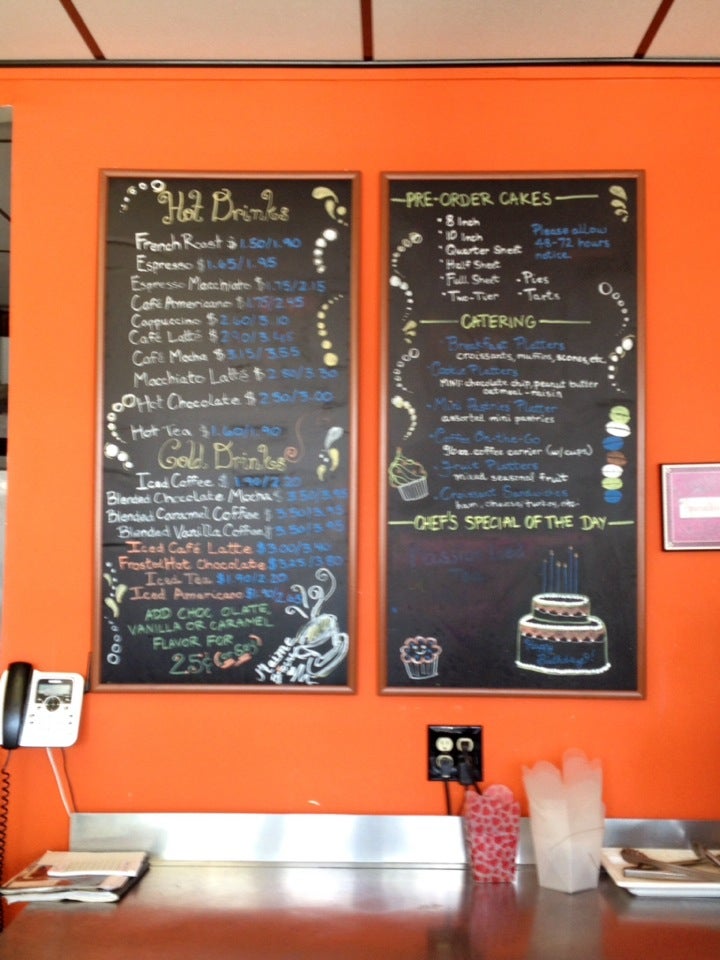 Hot Drinks
French Roast $ 1.50/1.90
Espresso $ 1.65/1.95
Espresso Macchiato $1.75/2.15
Café Americano $1.75/2.45
Cappuccino $ 2.60/3.10
Café Latte $
Café Mocha $ 3.15/3.55
Macchiato Latte $ 2.50/3.30
Hot Chocolate $ 2.50/3.00
Hot Tea $1.60/1.90
Cold Drinks
Iced Coffee $ 1.90/2.20
Blended Chocolate Mocha $ 3.50/3.95
Blended Caramel Coffee $ 3.50/3.95
Blended Vanilla Coffee $ 3.50/3.95
Iced Café Latte $3.00/3.40
Frosted Hot Chocolate $3.25/3.80
Iced Tea $1.90/2.20
Iced Americano $1.90/
ADD CHOCOLATE,
VANILLA OR CARAMEL
FLAVOR FOR
25¢
PRE-ORDER CAKES
• 8 Inch
• 10 Inch
• Quarter Sheet
• Half Sheet
• Full Sheet
• Two-Tier
• Pies
• Tarts
Please allow
48-72 hours
notice.
CATERING
• Breakfast Platters
croissants, muffins, scones, etc.
• Cookie Platters
MINI: chocolate chip, peanut butter
oatmeal-raisin
• Mini Pastries Platter
assorted mini pastries
• Coffee On-the-Go
96oz. coffee carrier (w/cups)
• Fruit Platters
mixed seasonal fruit
• Croissant Sandwiches
ham, cheese, turkey, etc.
CHEF'S SPECIAL OF THE DAY
Happy
Birthday!